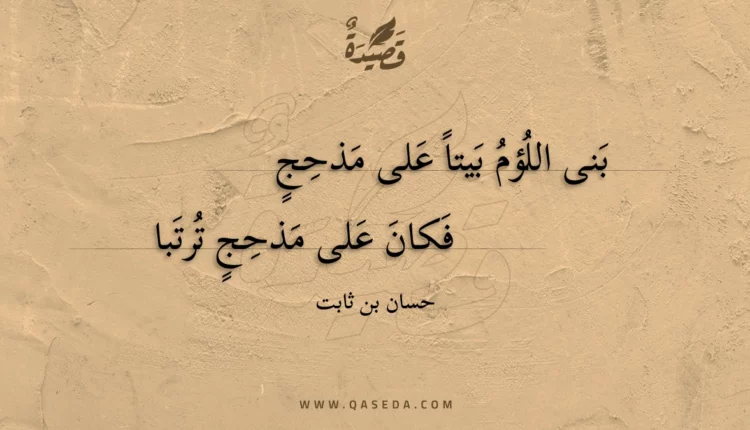 قَصِيدَةٌ
بَنى اللُؤمُ بَيتاً عَلى مَذحِجٍ
فَكانَ عَلى مَذحِجٍ تُرتَبا
حسان بن ثابت
WWW.QASEDA.COM